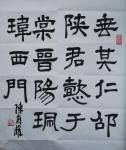 垂其仁邵
陕君懿于
棠晉陽珮
瑋西門